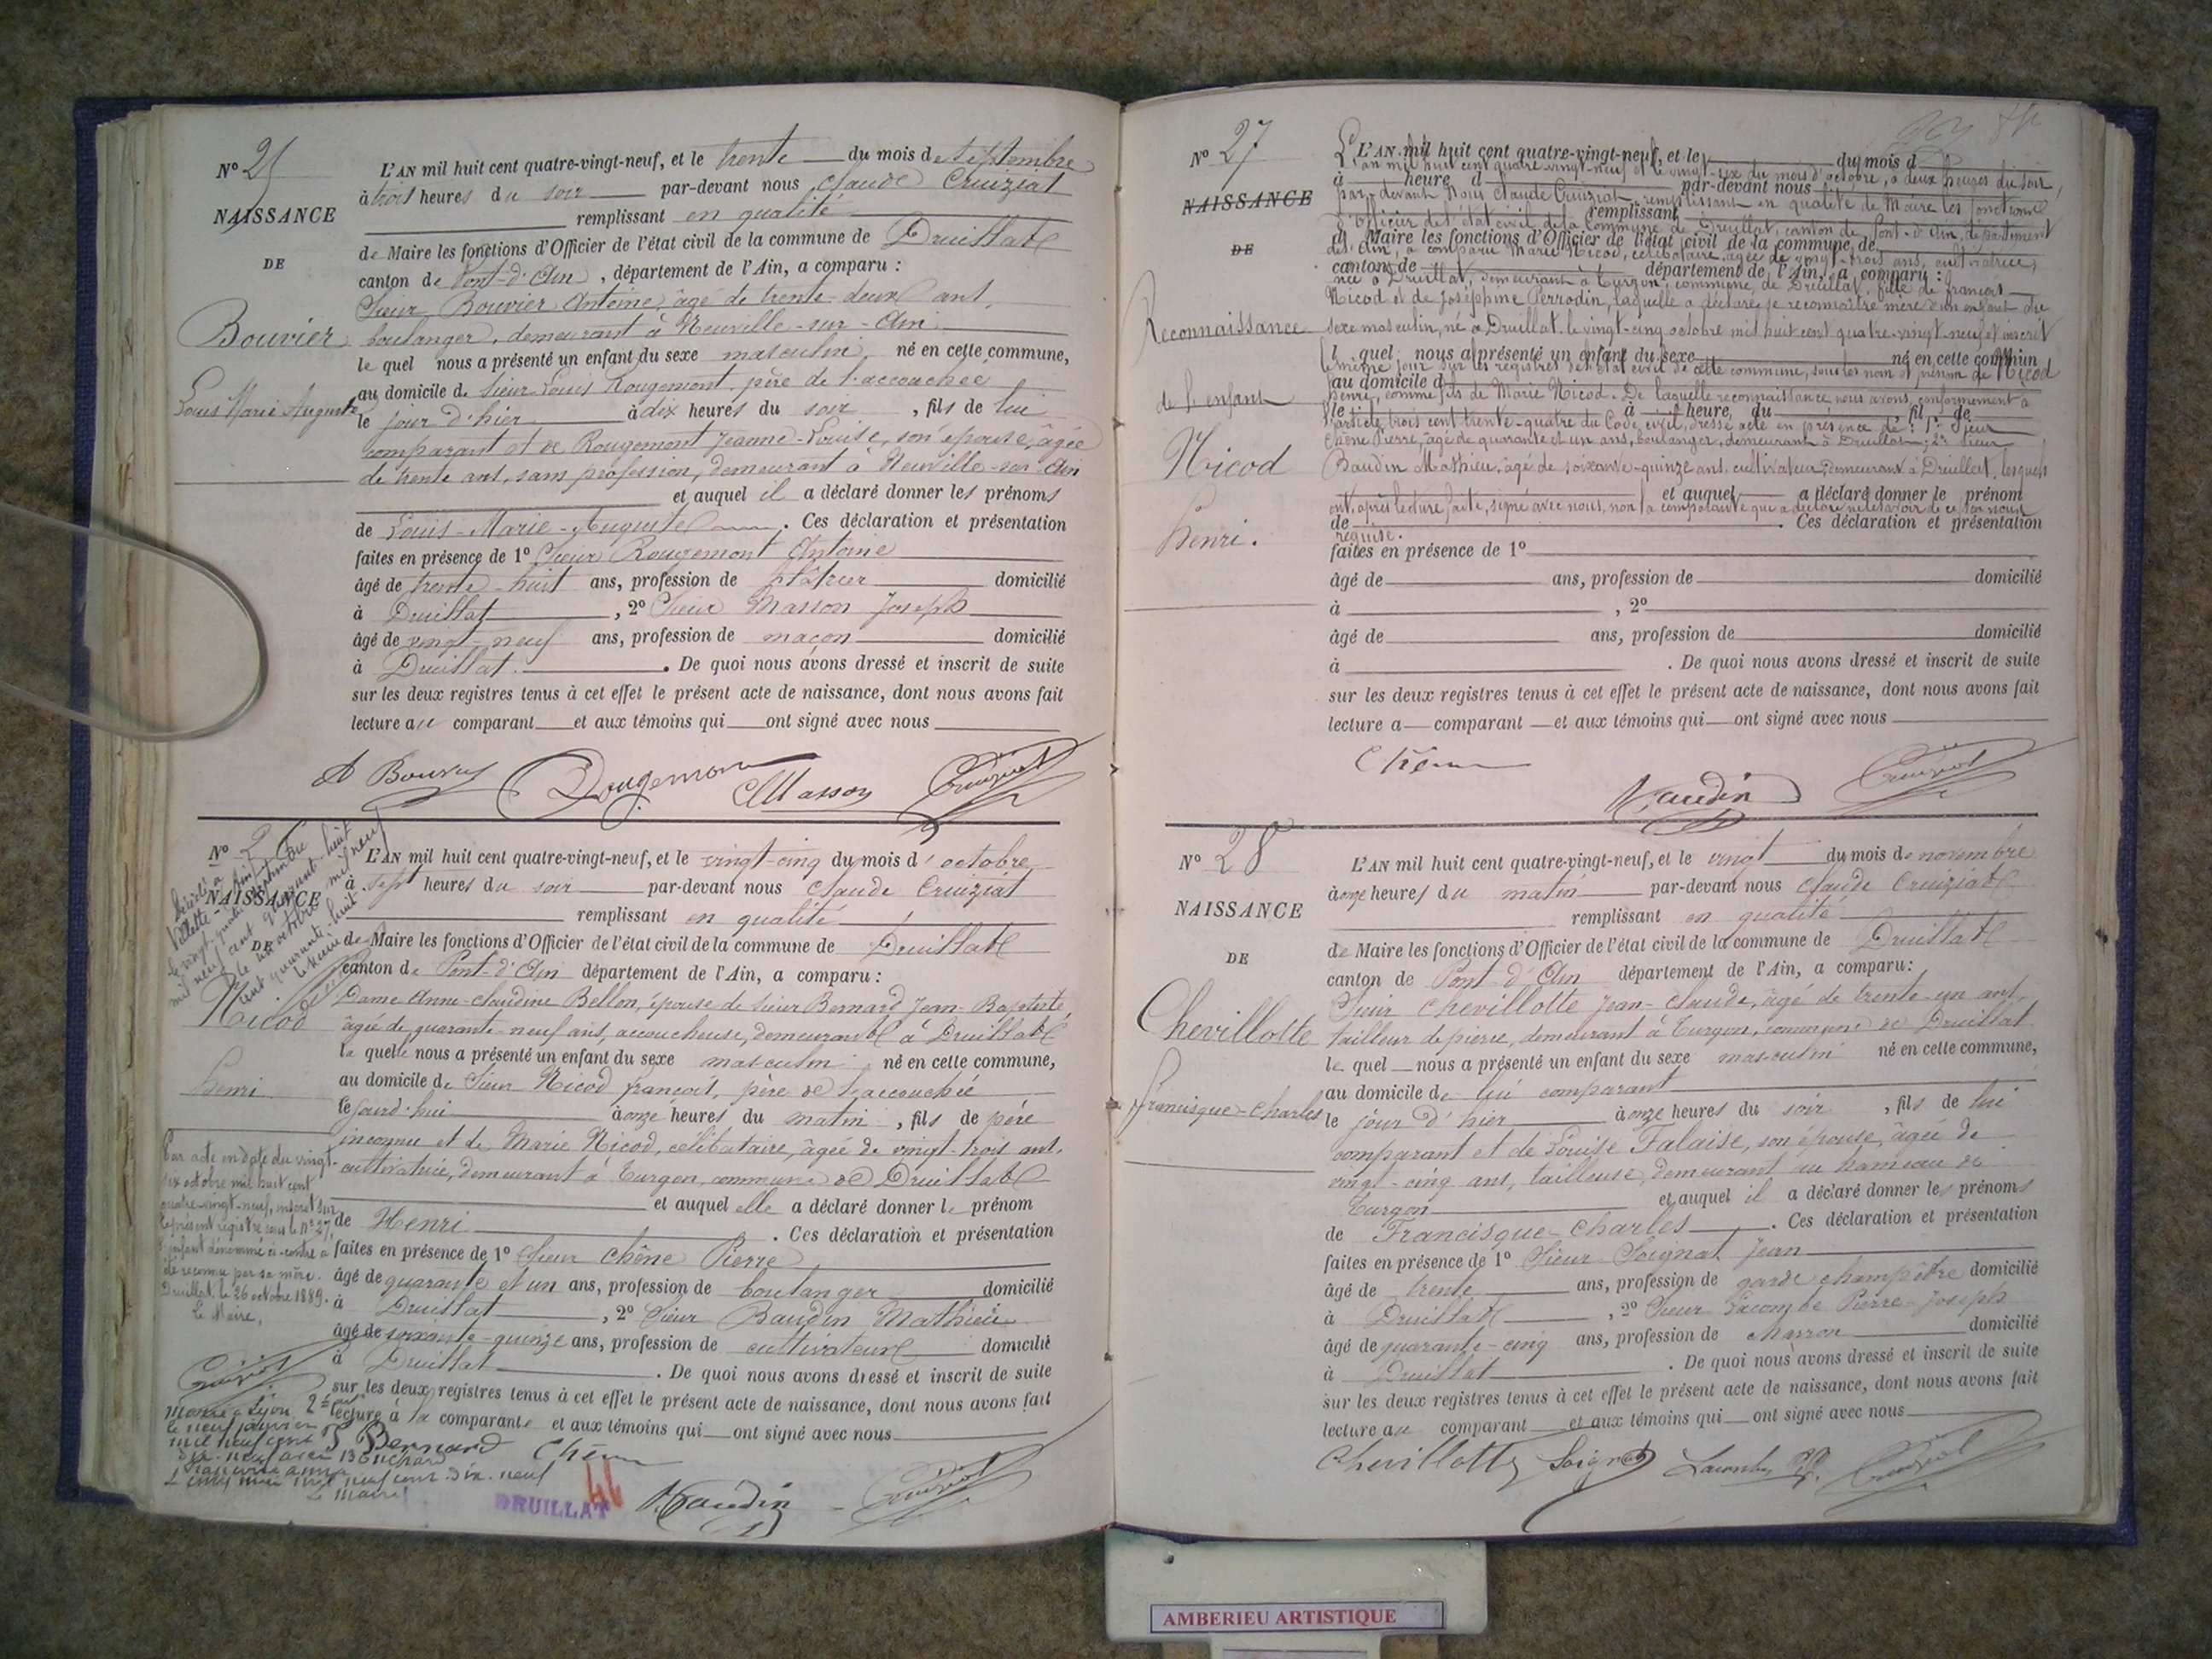 N° 25
NAISSANCE
DE
Bouvier
Louis Marie Auguste
L'AN mil huit cent quatre-vingt-neuf, et le trente du mois de septembre
à trois heures du soir par-devant nous Claude Cruiziat
remplissant en qualité
de Maire les fonctions d'Officier de l'état civil de la commune de Druillat
canton de Pont-d'Ain, département de l'Ain, a comparu :
Sieur Bouvier Antoine, âgé de trente-deux ans,
boulanger, demeurant à Neuville-sur-Ain
le quel nous a présenté un enfant du sexe masculin, né en cette commune,
au domicile de Sieur Louis Rougemont, père de l'accouchée
le jour d'hier à dix heures du soir, fils de lui
comparant et de Rougemont Jeanne-Louise, son épouse, âgée
de trente ans, sans profession, demeurant à Neuville-sur-Ain
et auquel il a déclaré donner les prénoms
de Louis-Marie-Auguste. Ces déclaration et présentation
faites en présence de 1° Sieur Rougemont Antoine
âgé de trente-huit ans, profession de plâtrier domicilié
à Druillat, 2° Sieur Masson Joseph
âgé de vingt-neuf ans, profession de maçon domicilié
à Druillat. De quoi nous avons dressé et inscrit de suite
sur les deux registres tenus à cet effet le présent acte de naissance, dont nous avons fait
lecture au comparant et aux témoins qui ont signé avec nous
A Bouvier Rougemont Masson Cruiziat
N° 26
NAISSANCE
DE
Décédé à
Villette
le vingt quatre septembre
mil neuf cent quarante huit
le six octobre mil neuf
cent quarante huit
Nicod
Henri
L'AN mil huit cent quatre-vingt-neuf, et le vingt-cinq du mois d'octobre
à sept heures du soir par-devant nous Claude Cruiziat
remplissant en qualité
de Maire les fonctions d'Officier de l'état civil de la commune de Druillat
canton de Pont-d'Ain département de l'Ain, a comparu :
Dame Anne-Claudine Bellon, épouse de sieur Bernard Jean-Baptiste,
âgée de quarante-neuf ans, accoucheuse, demeurant à Druillat
la quelle nous a présenté un enfant du sexe masculin, né en cette commune,
au domicile de Sieur Nicod françois, père de l'accouchée
le jourd'hui à onze heures du matin, fils de père
inconnu et de Marie Nicod, célibataire, âgée de vingt-trois ans,
cultivatrice, demeurant à Turgon, commune de Druillat
et auquel elle a déclaré donner le prénom
de Henri. Ces déclaration et présentation
faites en présence de 1° Sieur Chêne Pierre
âgé de quarante et un ans, profession de boulanger domicilié
à Druillat, 2° Sieur Baudin Mathieu
âgé de soixante-quinze ans, profession de cultivateur domicilié
à Druillat. De quoi nous avons dressé et inscrit de suite
sur les deux registres tenus à cet effet le présent acte de naissance, dont nous avons fait
lecture à la comparante et aux témoins qui ont signé avec nous
Bernard Chêne
Baudin Cruiziat
Par acte en date du vingt-
six octobre mil huit cent
quatre-vingt-neuf, inscrit sur
le présent registre sous le N° 27,
l'enfant dénommé ci-contre a
été reconnu par sa mère.
Druillat, le 26 octobre 1889.
Le Maire,
Cruiziat
Marié à Lyon 2e
le neuf janvier
mil neuf cent
dix-neuf avec Bouchard
mil neuf cent dix-neuf
Le Maire
DRUILLAT
N° 27
NAISSANCE
DE
Reconnaissance
de l'enfant
Nicod
Henri.
L'AN mil huit cent quatre-vingt-neuf, et le du mois d
L'an mil huit cent quatre-vingt-neuf et le vingt-six du mois d'octobre, à deux heures du soir,
à heure d par-devant nous
par-devant Nous Claude Cruiziat, remplissant en qualité de Maire les fonctions
remplissant
d'officier de l'état civil de la commune de Druillat, canton de Pont-d'Ain, département
d Maire les fonctions d'Officier de l'état civil de la commune de
de l'Ain, a comparu Marie Nicod, célibataire, âgée de vingt-trois ans, cultivatrice,
canton de département de l'Ain, a comparu :
née à Druillat, demeurant à Turgon, commune de Druillat, fille de françois
Nicod et de Joséphine Perrodin, laquelle a déclaré se reconnaître mère d'un enfant du
sexe masculin, né à Druillat le vingt-cinq octobre mil huit cent quatre-vingt-neuf et inscrit
l quel nous a présenté un enfant du sexe né en cette commun
le même jour sur les registres de l'état civil de cette commune, sous les nom et prénom de Nicod
au domicile d
Henri, comme fils de Marie Nicod. De laquelle reconnaissance nous avons, conformément à
le à heure, du , fil de
l'article trois cent trente-quatre du Code civil, dressé acte en présence de : 1° Sieur
Chêne Pierre, âgé de quarante et un ans, boulanger, demeurant à Druillat; 2° Sieur
Baudin Mathieu, âgé de soixante-quinze ans, cultivateur, demeurant à Druillat, lesquels
et auquel a déclaré donner le prénom
ont, après lecture faite, signé avec nous, non la comparante qui a déclaré ne le savoir de ce par nous
de . Ces déclaration et présentation
requise.
faites en présence de 1°
âgé de ans, profession de domicilié
à , 2°
âgé de ans, profession de domicilié
à . De quoi nous avons dressé et inscrit de suite
sur les deux registres tenus à cet effet le présent acte de naissance, dont nous avons fait
lecture a comparant et aux témoins qui ont signé avec nous
Chêne
Baudin Cruiziat
N° 28
NAISSANCE
DE
Chevillotte
Francisque-Charles
L'AN mil huit cent quatre-vingt-neuf, et le vingt du mois de novembre
à onze heures du matin par-devant nous Claude Cruiziat
remplissant en qualité
de Maire les fonctions d'Officier de l'état civil de la commune de Druillat
canton de Pont-d'Ain département de l'Ain, a comparu :
Sieur Chevillotte Jean-Claude, âgé de trente-un ans,
tailleur de pierre, demeurant à Turgon, commune de Druillat
le quel nous a présenté un enfant du sexe masculin né en cette commune,
au domicile de lui comparant
le jour d'hier à onze heures du soir, fils de lui
comparant et de Louise Falaise, son épouse, âgée de
vingt-cinq ans, tailleuse, demeurant au hameau de
Turgon et auquel il a déclaré donner les prénoms
de Francisque-Charles. Ces déclaration et présentation
faites en présence de 1° Sieur Soignat Jean
âgé de trente ans, profession de garde champêtre domicilié
à Druillat, 2° Sieur Lacombe Pierre-Joseph
âgé de quarante-cinq ans, profession de charron domicilié
à Druillat. De quoi nous avons dressé et inscrit de suite
sur les deux registres tenus à cet effet le présent acte de naissance, dont nous avons fait
lecture au comparant et aux témoins qui ont signé avec nous
Chevillotte Soignat Lacombe Cruiziat
AMBERIEU ARTISTIQUE